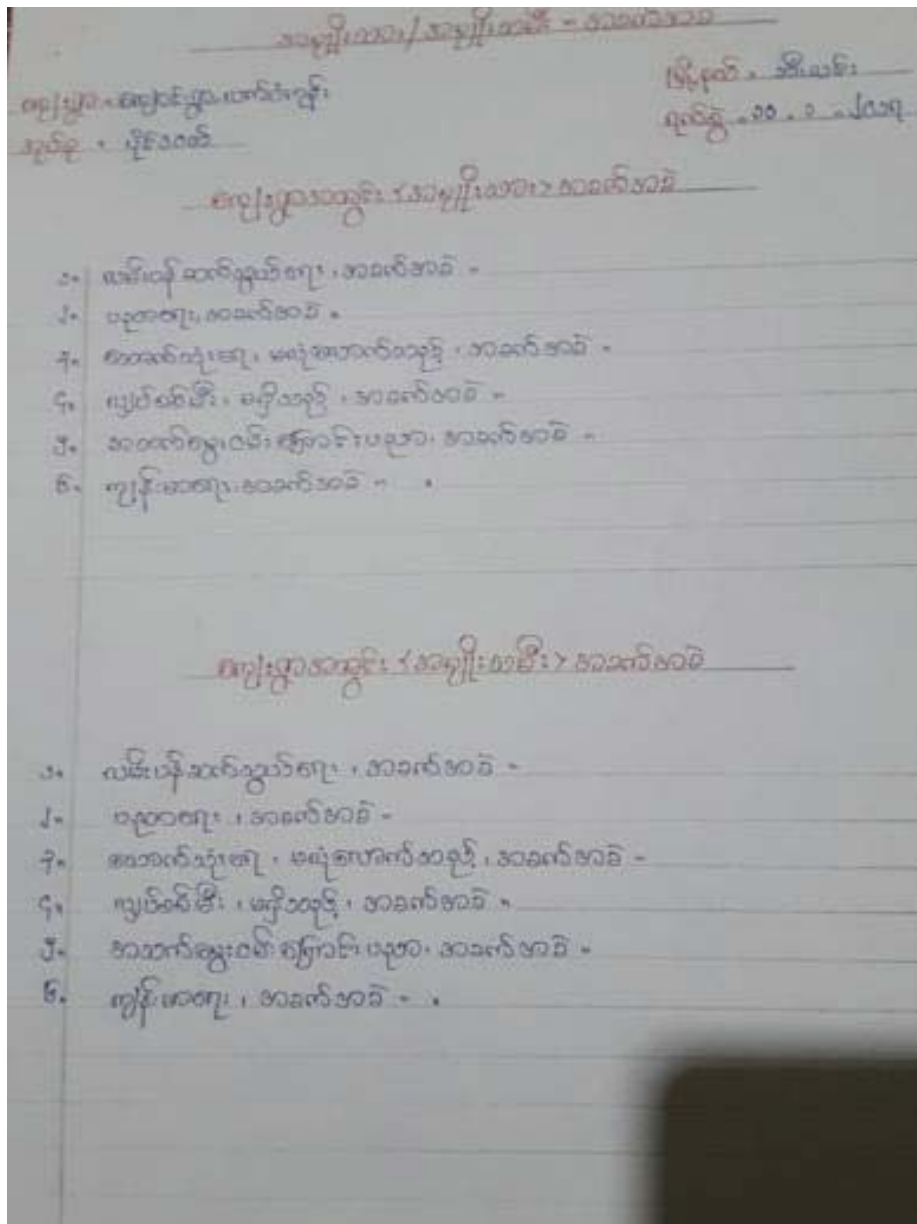 အမျိုးသား/အမျိုးသမီး - အခက်အခဲ
ကျေးရွာ
မြို့နယ် - သီးလင်း
အုပ်စု - ပိုင်သတ်
ရက်စွဲ - ၁၁ . ၁ - ၂၀၁၇
ကျေးရွာအတွင်း <အမျိုးသား> အခက်အခဲ
၁။ လမ်းပန်ဆက်သွယ်ရေး ၊ အခက်အခဲ ။
၂။ ပညာရေး ၊ အခက်အခဲ ။
၃။ သောက်သုံးရေ ၊ မလုံလောက်သည့် ၊ အခက်အခဲ ။
၄။ လျှပ်စစ်မီး ၊ မရှိသည့် ၊ အခက်အခဲ ။
၅။ အသက်မွေးဝမ်းကြောင်းပညာ ၊ အခက်အခဲ ။
၆။ ကျန်းမာရေး ၊ အခက်အခဲ ။ ။
ကျေးရွာအတွင်း <အမျိုးသမီး> အခက်အခဲ
၁။ လမ်းပန်ဆက်သွယ်ရေး ၊ အခက်အခဲ ။
၂။ ပညာရေး ၊ အခက်အခဲ ။
၃။ သောက်သုံးရေ ၊ မလုံလောက်သည့် ၊ အခက်အခဲ ။
၄။ လျှပ်စစ်မီး ၊ မရှိသည့် ၊ အခက်အခဲ ။
၅။ အသက်မွေးဝမ်းကြောင်းပညာ ၊ အခက်အခဲ ။
၆။ ကျန်းမာရေး ၊ အခက်အခဲ ။ ။